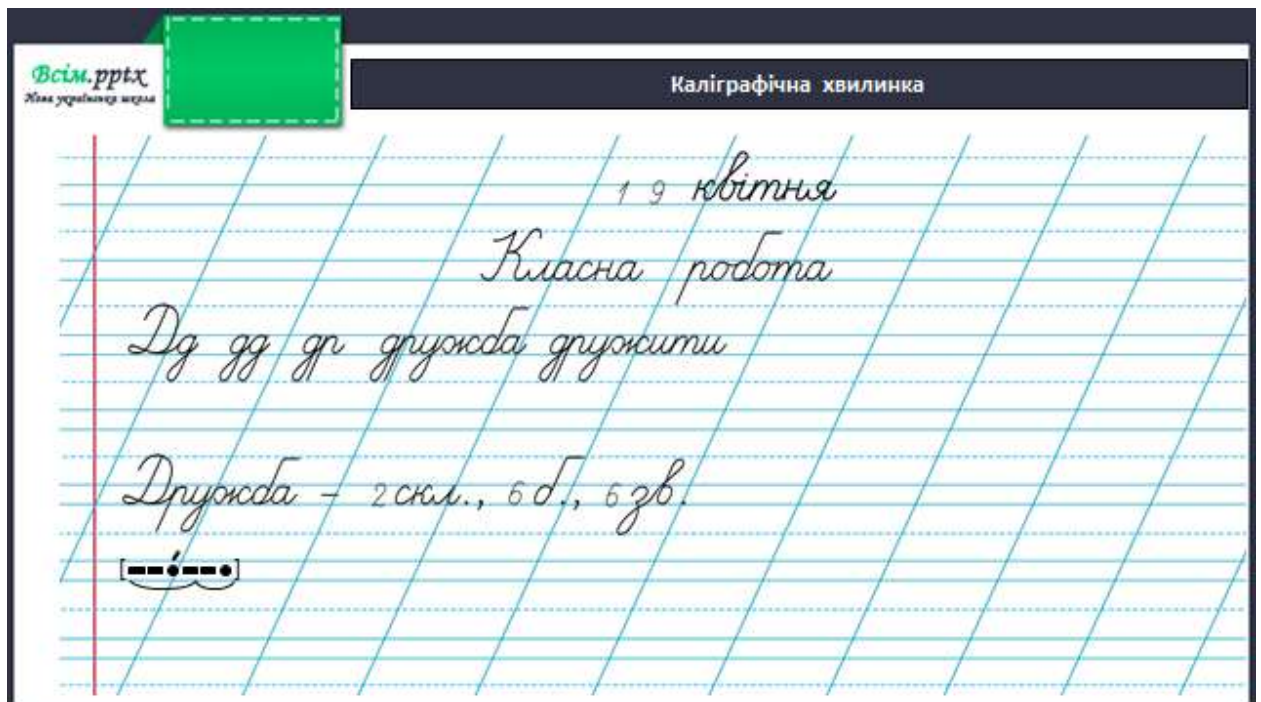 Всім.pptx
Нова українська школа
Каліграфічна хвилинка
19 квітня
Класна робота
Дд дд др дружба дружити
Дружба – 2 скл., 6 б., 6 зв.
[––•́––•]